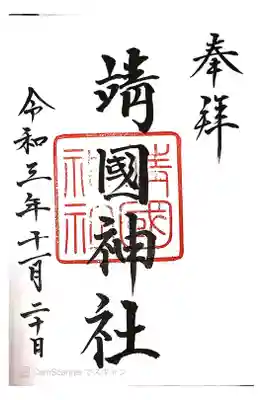 奉拝
靖國神社
靖國神社
令和三年十一月二十日
CamScanner でスキャン